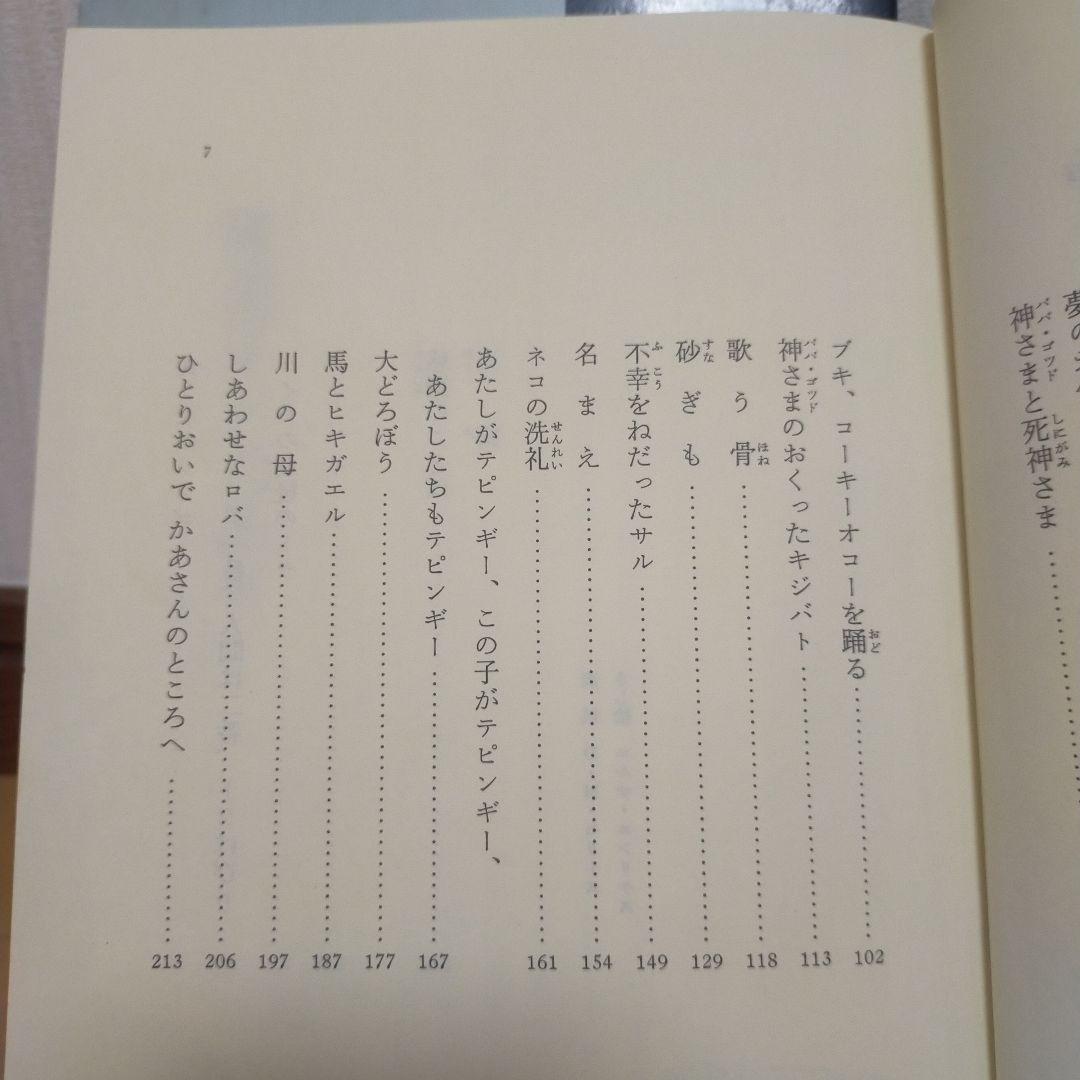 夢の
神さまと死神さま
ババ・ゴッド
しにがみ
ブキ、コーキーオコーを踊る……102
おど
神さまのおくったキジバト……113
パパ・ゴッド
歌う骨……118
ほね
砂ぎも……129
すな
不幸をねだったサル……149
ふこう
名まえ……154
ネコの洗礼……161
せんれい
あたしがテピンギー、この子がテピンギー、
あたしたちもテピンギー……167
大どろぼう……177
馬とヒキガエル……187
川の母……197
しあわせなロバ……206
ひとりおいで かあさんのところへ……213
7